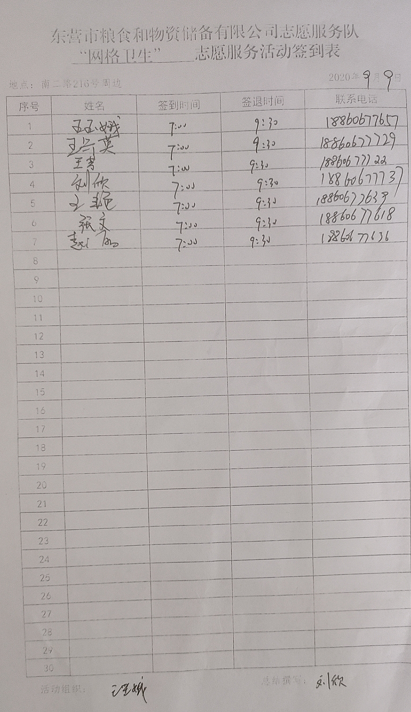 东营市粮食和物资储备有限公司志愿服务队
“网格卫生” 志愿服务活动签到表
地点：南二路216号周边 2020年9月9日
序号 姓名 签到时间 签退时间 联系电话
1 王玉娥 7:00 9:30 18860677657
2 王兰英 7:00 9:30 18860677729
3 王芳 7:00 9:30 18860677722
4 刘欣 7:00 9:30 18860677737
5 王艳 7:00 9:30 18860677639
6 张文 7:00 9:30 18860677618
7 7:00 9:30 18860677636
8
9
10
11
12
13
14
15
16
17
18
19
20
21
22
23
24
25
26
27
28
29
30
活动组织： 总结撰写：刘欣